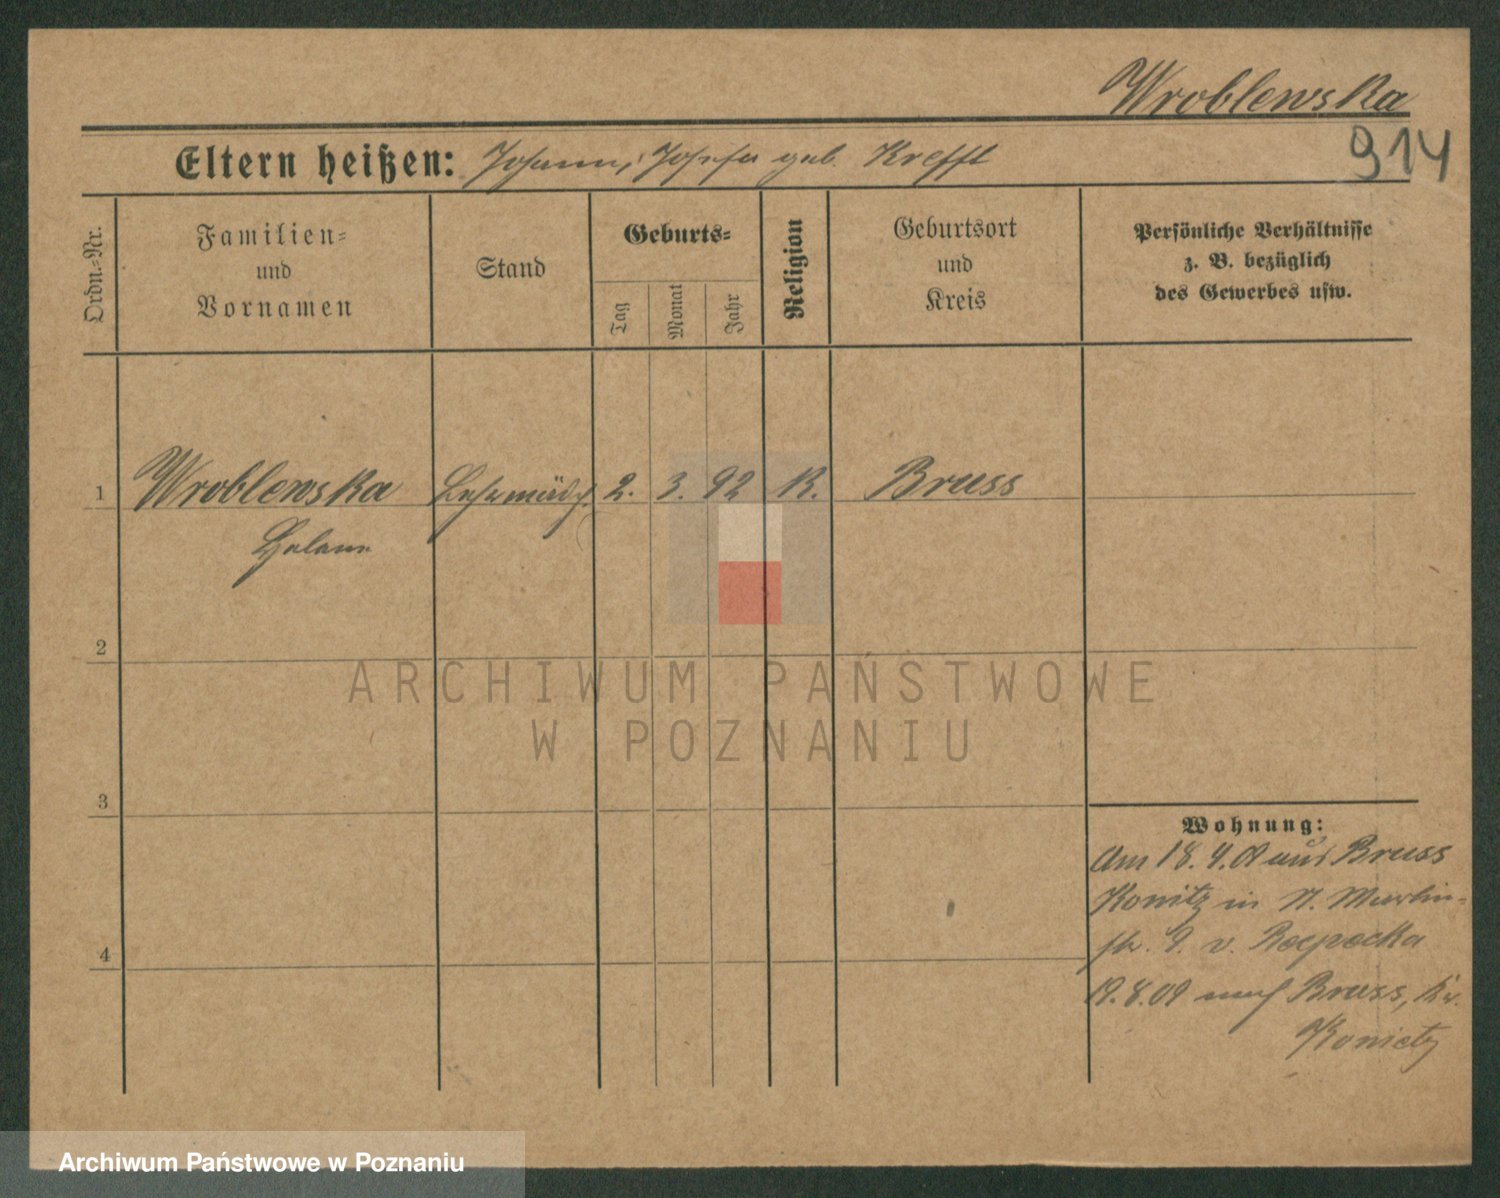 Wroblewska
914
Eltern heißen: Johann, Josefa geb. Krefft
Ordn.-Nr.
Familien-
und
Vornamen
Stand
Geburts-
Tag
Monat
Jahr
Religion
Geburtsort
und
Kreis
Persönliche Verhältnisse
z. B. bezüglich
des Gewerbes usw.
1 Wroblewska Lehrmädch. 2. 3. 92 K. Bruss
Helene
2
3
4
Wohnung:
Am 18.4.09 aus Bruss
Konitz in St. Martin-
str. 9. v.
19.8.09 nach Bruss, Kr.
Konietz
ARCHIWUM PAŃSTWOWE
W POZNANIU
Archiwum Państwowe w Poznaniu